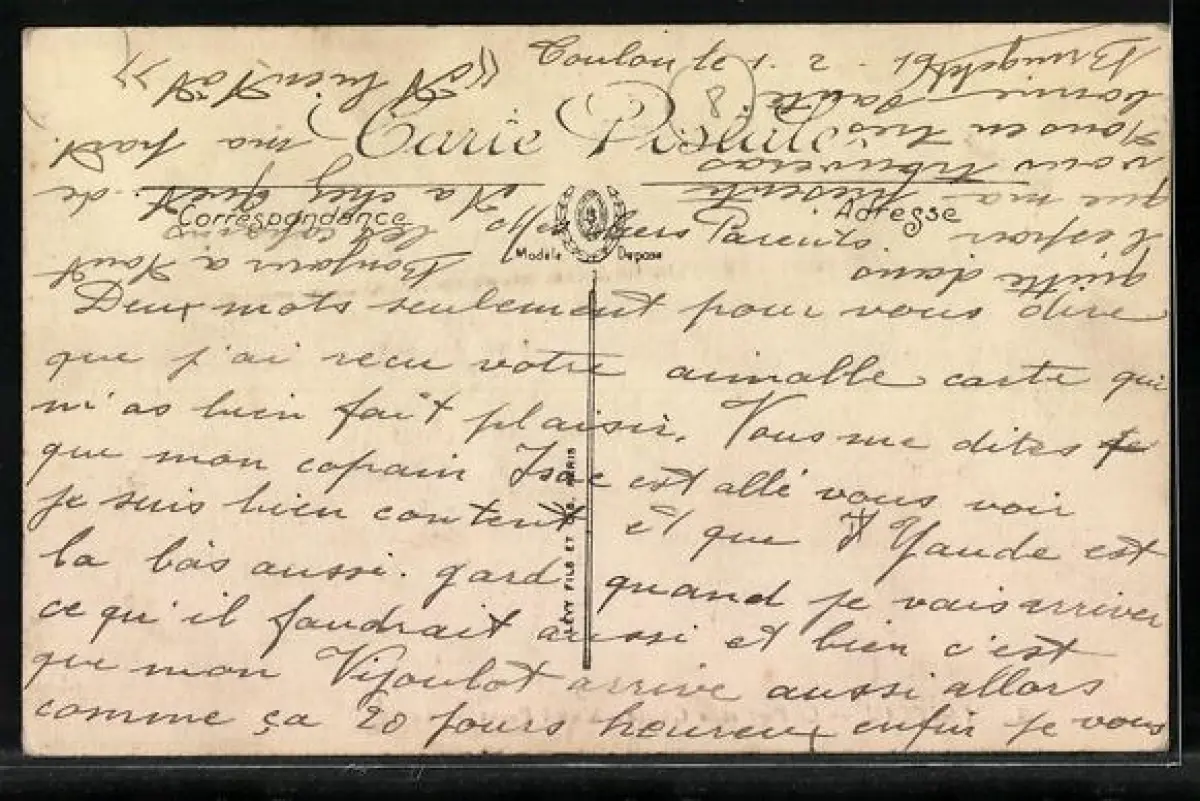 Carte Postale
Correspondance
Adresse
Modèle Déposé
LÉVY FILS ET CIE. PARIS
Toulon le 1. 2. 19
8
Chers Parents.
Deux mots seulement pour vous dire
que j'ai recu votre aimable carte qui
m'as bien fait plaisir. Vous me dites
que mon copain Isac est allé vous voir
je suis bien content et que Yaude est
la bas aussi. gard quand je vais arriver
ce qu'il faudrait aussi et bien c'est
que mon Vijoulot arrive aussi allors
comme ça 20 jours heureux enfin je vous
quitte dans
l'espoir
que ma présente
vous trouveras
Tous en très
bonne santé
Bonjour a tout
les copains
a chez
de
ma part.
A bientôt